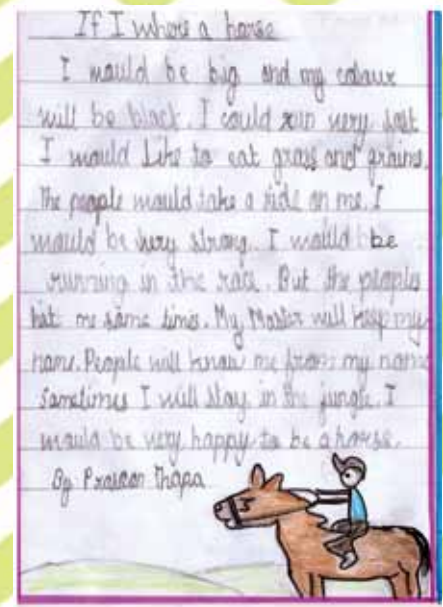 If I where a horse
I would be big and my colour
will be black. I could run very fast
I would like to eat grass and grains.
The people would take a ride on me. I
would be very strong. I would be
running in the race. But the people
hit me some times. My Master will keep my
name. People will know me from my name
Sometimes I will stay in the jungle. I
would be very happy to be a horse.
By Prasoon Thapa